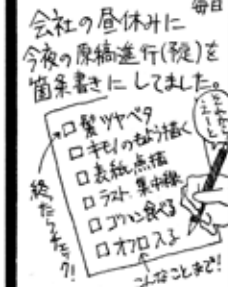 毎日
会社の昼休みに
今夜の原稿進行(予定)を
箇条書きにしてました。
□髪ツヤベタ
□キモノもよう描く
□表紙点描
□ラスト、集中線
□ゴハン食べる
□オフロ入る
それから
えーと
終ったらチェック!
こんなことまで!